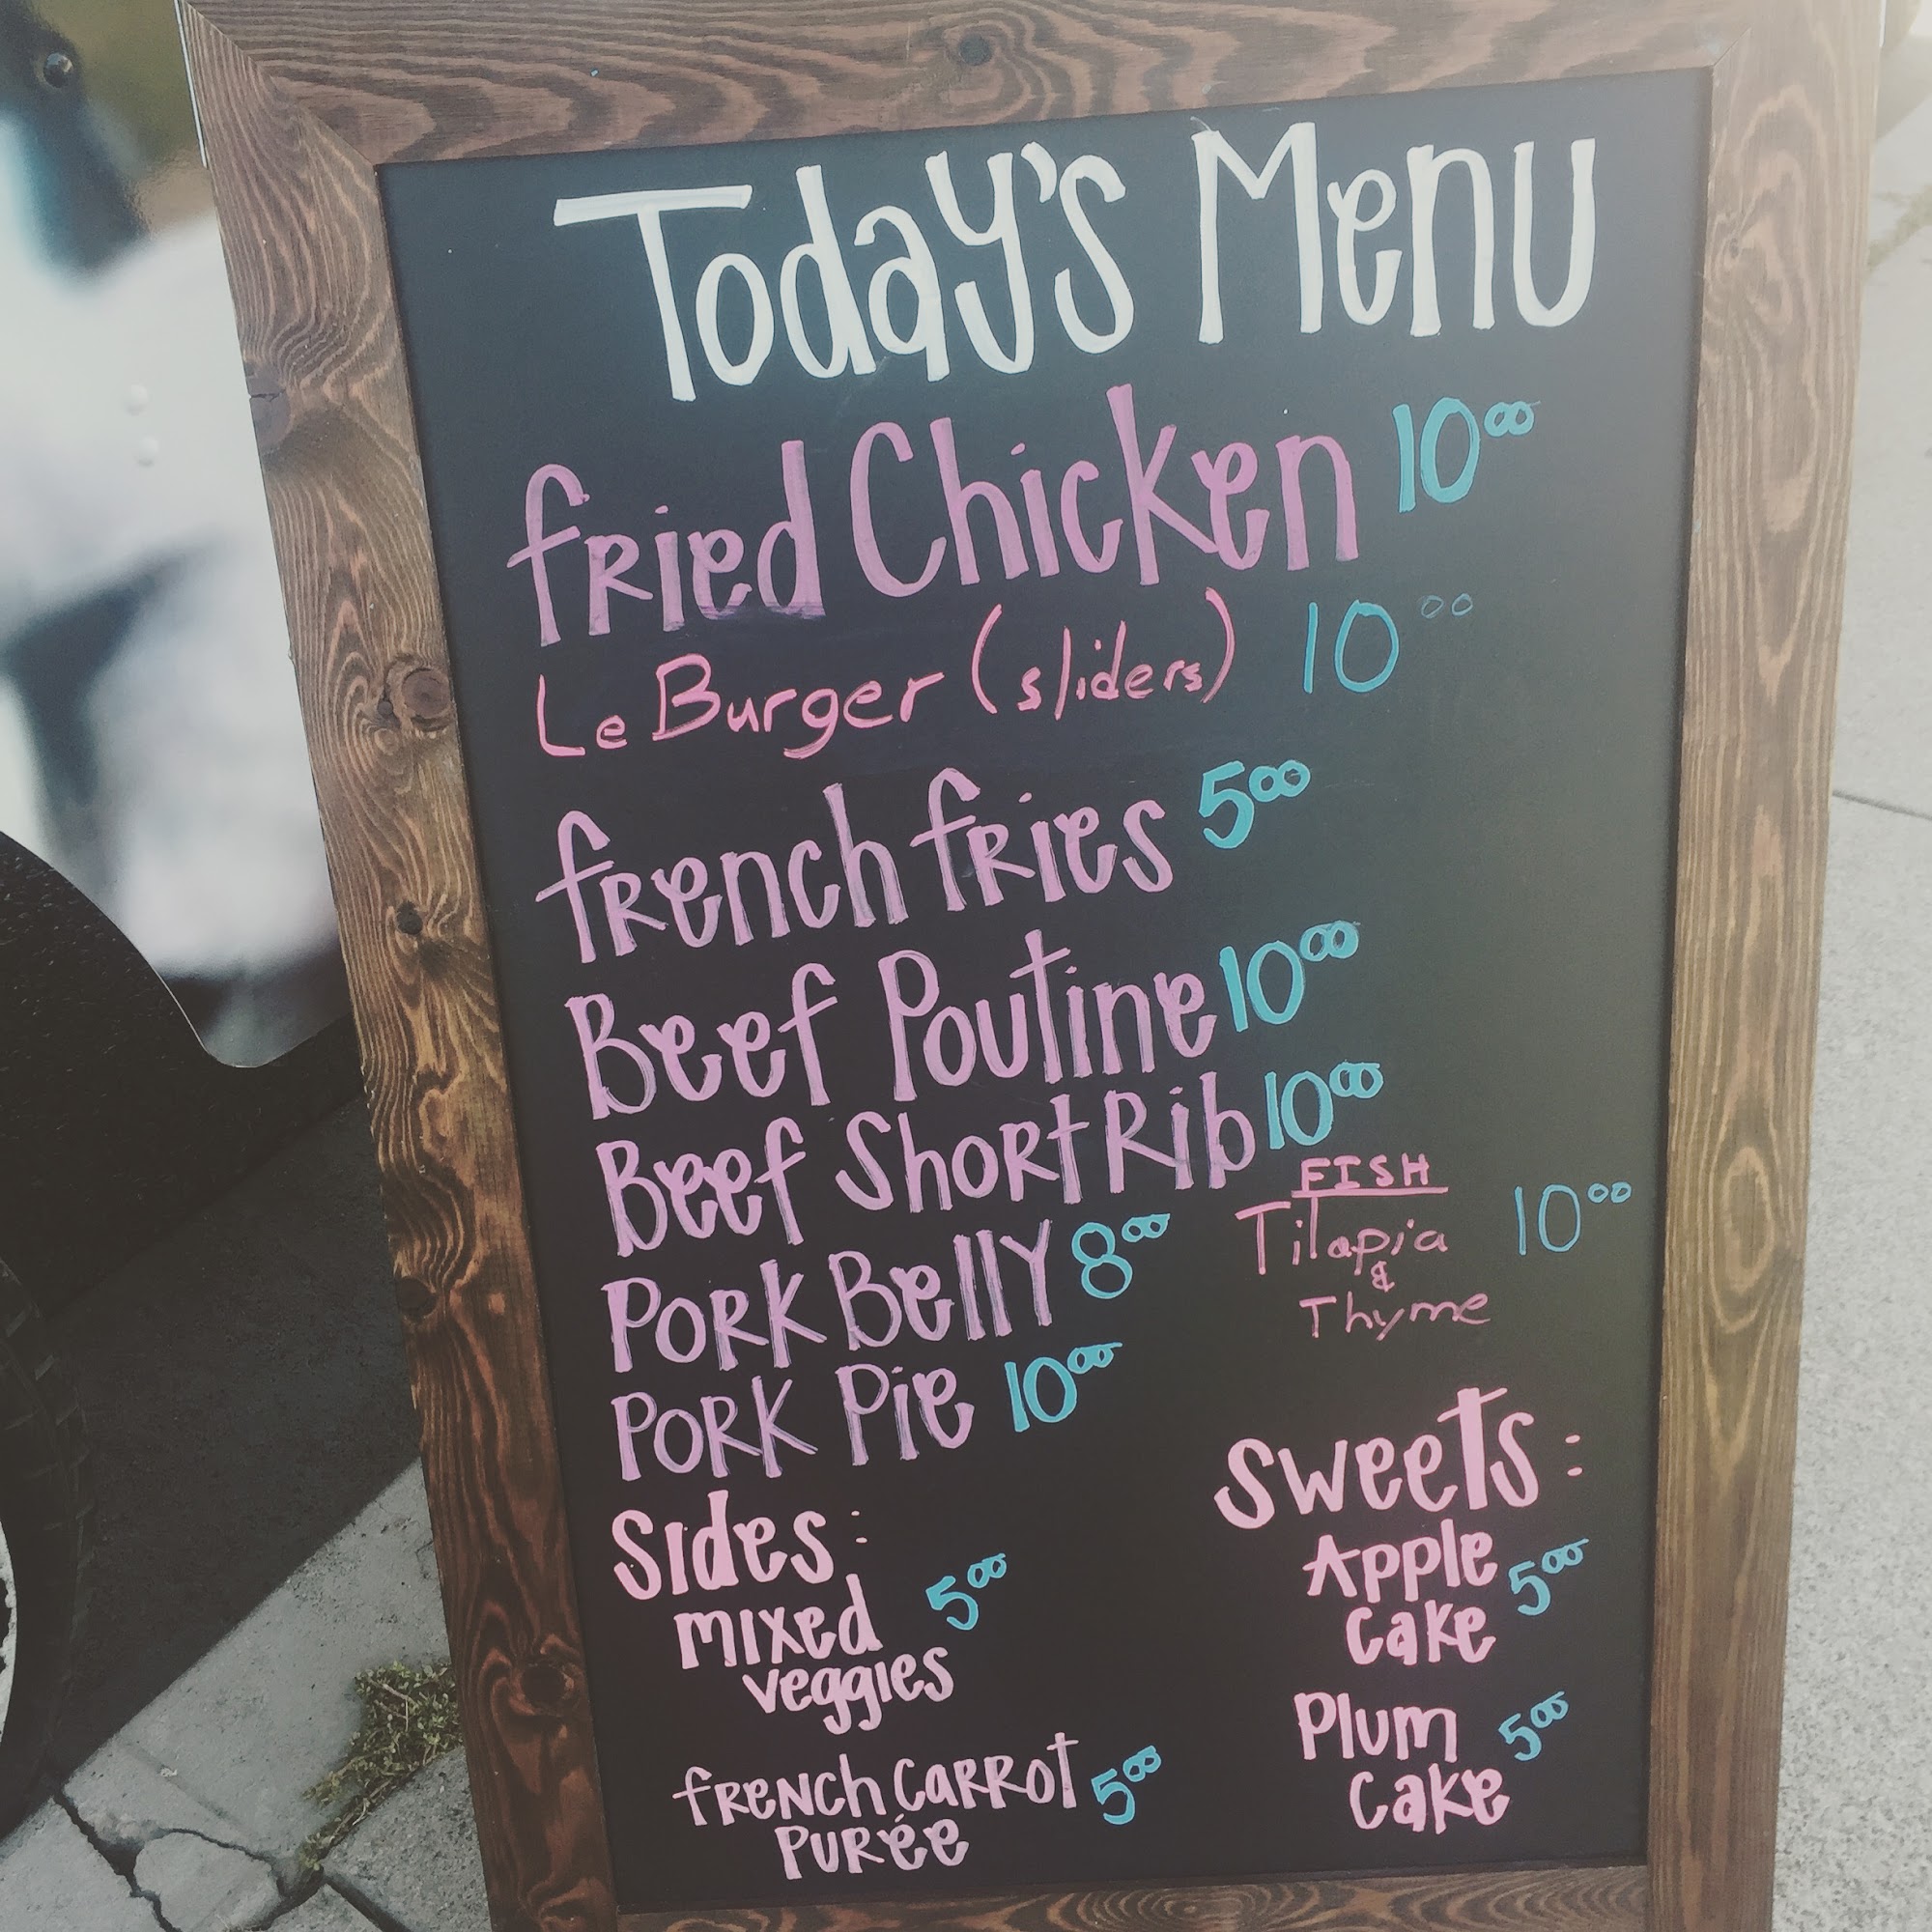 Today's Menu
fried Chicken 10⁰⁰
Le Burger (sliders) 10⁰⁰
french fries 5⁰⁰
Beef Poutine 10⁰⁰
Beef Short Rib 10⁰⁰
Pork Belly 8⁰⁰
Pork Pie 10⁰⁰
FISH
Tilapia 10⁰⁰
&
Thyme
Sides:
mixed 5⁰⁰
veggies
french carrot 5⁰⁰
purée
Sweets:
Apple
cake 5⁰⁰
Plum 5⁰⁰
cake